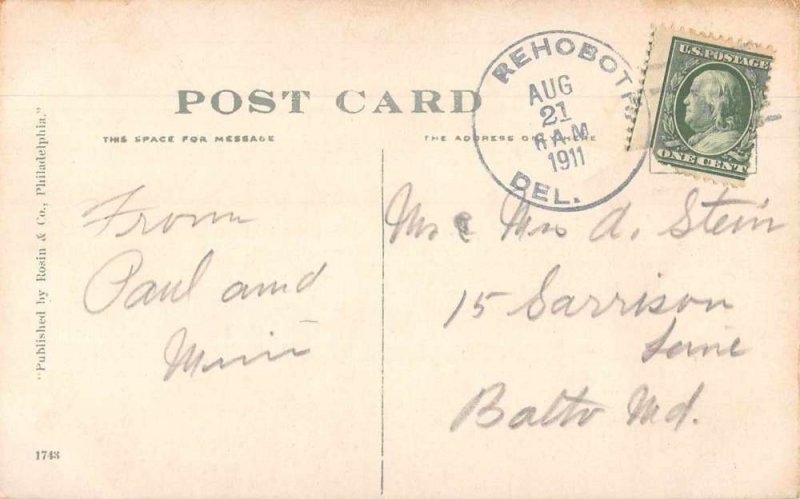 POST CARD
THIS SPACE FOR MESSAGE
THE ADDRESS ON HERE
REHOBOTH
AUG
21
6 A.M.
1911
DEL.
U.S. POSTAGE
ONE CENT
From
Paul and
Mr & Mrs A. Stein
15 Garrison
Lane
Balto Md.
"Published by Rosin & Co., Philadelphia."
1743